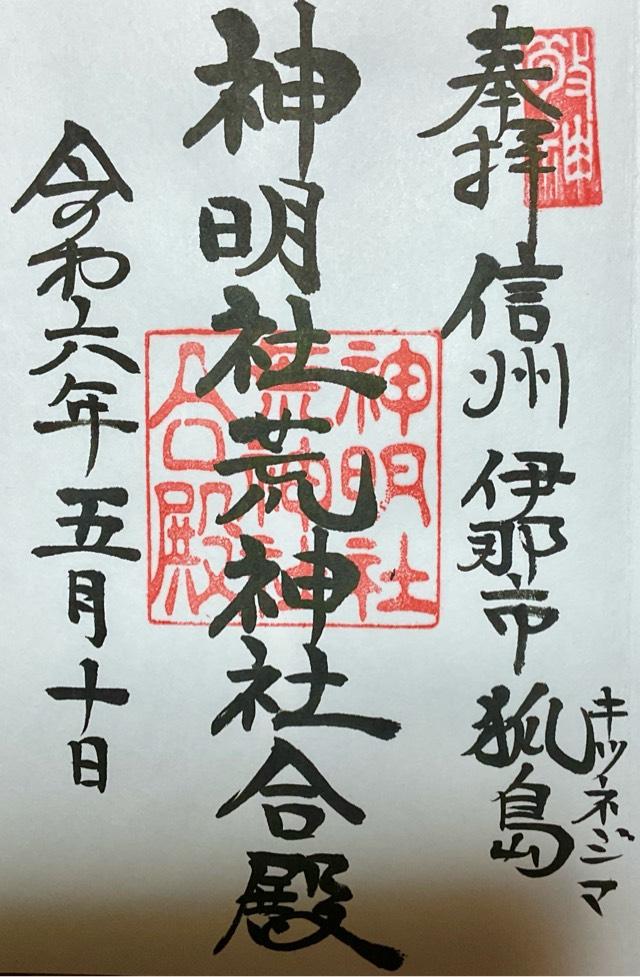 敬神
奉拝 信州 伊那市 狐島
キツネジマ
神明社荒神社合殿
神明社
荒神社
合殿
令和六年五月十日